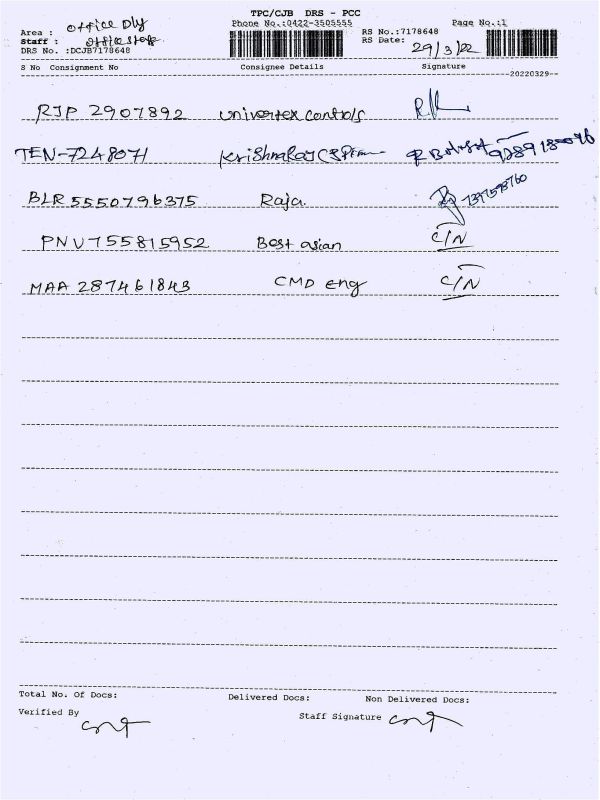 TPC/CJB DRS - PCC
Phone No.:0422-3505555
Page No.:1
Area : office Dly
Staff : office staff
DRS No. :DCJB7178648
RS No.:7178648
RS Date: 29/3/22
S No Consignment No Consignee Details Signature
--20220329--
RJP 2907892 univertex controls
TEN-7248071
BLR 5550796375 Raja. 7397598760
PNV755815952 Best asian C/N
MAA 287461843 CMD eng C/N
Total No. Of Docs: Delivered Docs: Non Delivered Docs:
Verified By Staff Signature